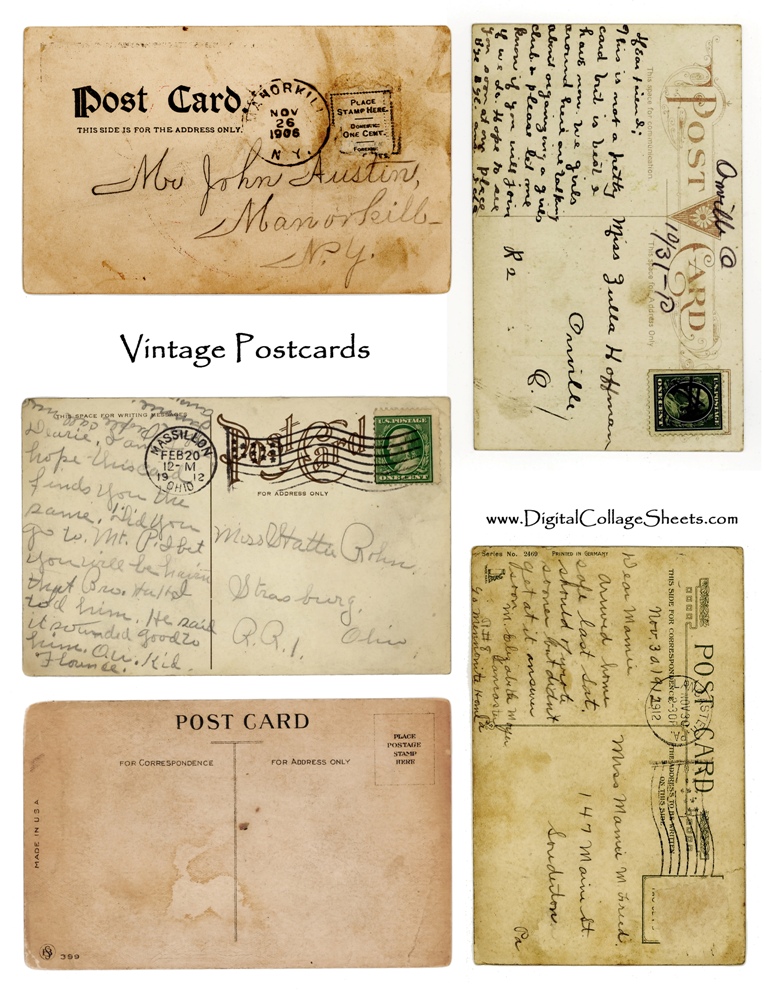 Post Card.
THIS SIDE IS FOR THE ADDRESS ONLY.
MANORKILL
NOV
26
1906
N.Y.
PLACE
STAMP HERE.
DOMESTIC
ONE CENT.
FOREIGN
Mr John Austin,
Manorkill
N.Y.
Dear Friend;
This is not a pretty
card but is best I
have now. We girls
around here are talking
about organizing a girls
club & please let me
know if you will join
if we do. Hope to see
you soon at our place
This space for communication
POST CARD
This space for Address Only
Orrville O
10/31-10
Miss Zulla Hoffman
R 2
Orrville
O.
U.S. POSTAGE
ONE CENT
Vintage Postcards
THIS SPACE FOR WRITING MESSAGES
Post Card
FOR ADDRESS ONLY
MASSILLON
FEB 20
12-M
1912
OHIO
U.S. POSTAGE
ONE CENT
Dearie, I am
hope this card
finds you the
same. Did you
go to. Mt. P. I bet
you will be havin
that
told him. He said
it sounded good to
him. Au. Kid.
Florence.
Miss Hattie Rohn.
Strasburg,
R.R. 1. Ohio
www.DigitalCollageSheets.com
Series No. 2469 PRINTED IN GERMANY
THIS SIDE FOR CORRESPONDENCE
POST CARD
THE ADDRESS TO BE WRITTEN
ON THIS SIDE
Nov. 30, 1912
Dear Mamie
Arrived home
safe last Sat.
should of wrote
sooner but didn't
get at it answer
soon.
M. Elizabeth Moyer
Lancaster
R # 8 Pa
Co Mennonite Home
Miss Mamie M Freed.
147 Main St.
Souderton
Pa
POST CARD
FOR CORRESPONDENCE
FOR ADDRESS ONLY
PLACE
POSTAGE
STAMP
HERE
MADE IN U.S.A
399